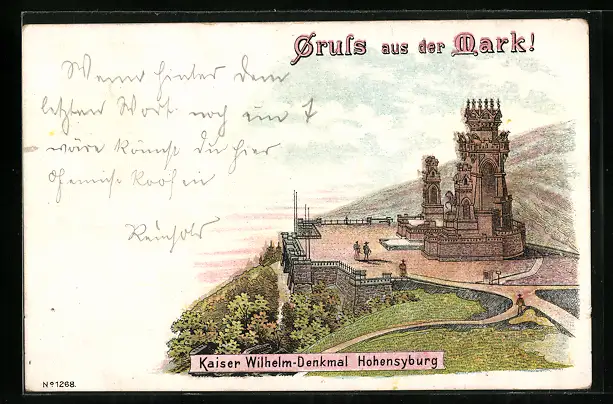 Gruſs aus der Mark!
Wenn hinter dem
letzten Wort noch ein T
wäre könnst du hier
Reinhold
Kaiser Wilhelm-Denkmal Hohensyburg
Nº 1268.